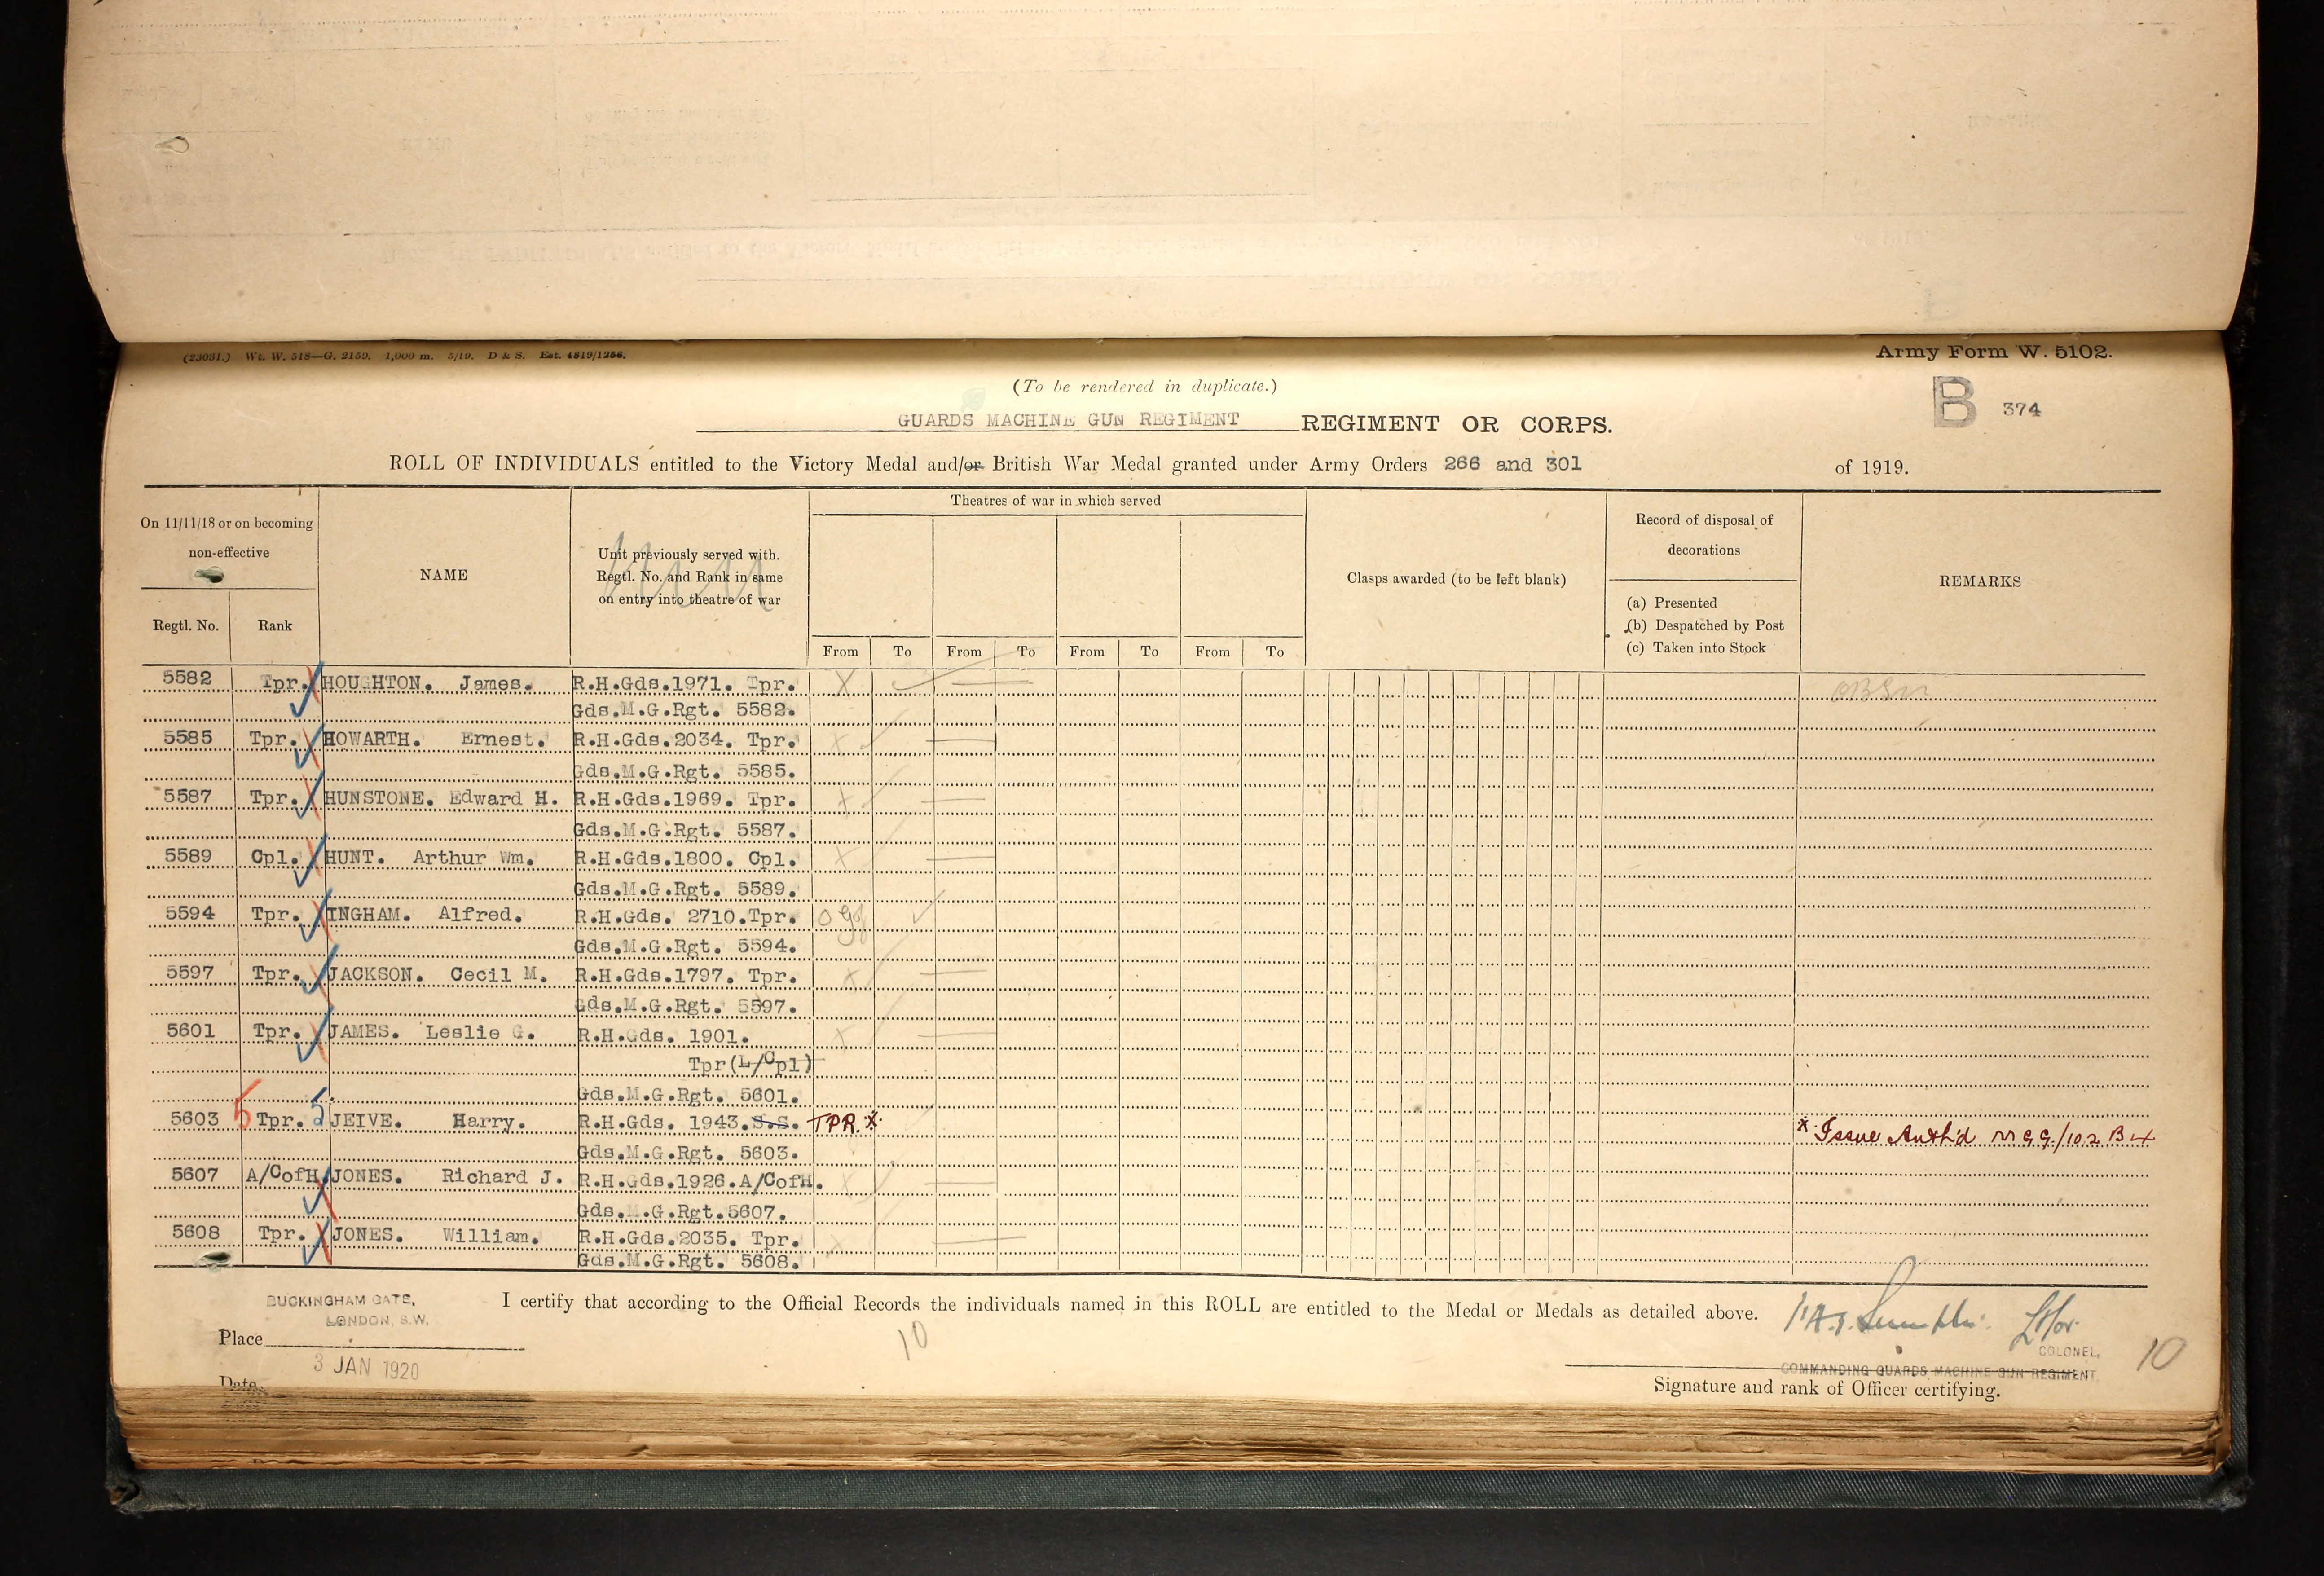 (23031.) Wt. W. 518—G. 2159. 1,000 m. 5/19. D & S. Est. 4819/1256.
Army Form W. 5102.
(To be rendered in duplicate.)
B 374
GUARDS MACHINE GUN REGIMENT REGIMENT OR CORPS.
ROLL OF INDIVIDUALS entitled to the Victory Medal and/or British War Medal granted under Army Orders 266 and 301 of 1919.
On 11/11/18 or on becoming non-effective
Regtl. No. Rank
NAME
Unit previously served with.
Regtl. No. and Rank in same
on entry into theatre of war
Theatres of war in which served
From To From To From To From To
Clasps awarded (to be left blank)
Record of disposal of
decorations
(a) Presented
(b) Despatched by Post
(c) Taken into Stock
REMARKS
5582 Tpr. HOUGHTON. James. R.H.Gds.1971. Tpr. X
Gds.M.G.Rgt. 5582.
5585 Tpr. HOWARTH. Ernest. R.H.Gds.2034. Tpr. X
Gds.M.G.Rgt. 5585.
5587 Tpr. HUNSTONE. Edward H. R.H.Gds.1969. Tpr. X
Gds.M.G.Rgt. 5587.
5589 Cpl. HUNT. Arthur Wm. R.H.Gds.1800. Cpl. X
Gds.M.G.Rgt. 5589.
5594 Tpr. INGHAM. Alfred. R.H.Gds. 2710.Tpr.
Gds.M.G.Rgt. 5594.
5597 Tpr. JACKSON. Cecil M. R.H.Gds.1797. Tpr. X
Gds.M.G.Rgt. 5597.
5601 Tpr. JAMES. Leslie G. R.H.Gds. 1901. X
Tpr(L/Cpl)
Gds.M.G.Rgt. 5601.
5603 5 Tpr. 5 JEIVE. Harry. R.H.Gds. 1943.S.S. TPR.* * Issue Auth'd
Gds.M.G.Rgt. 5603.
5607 A/CofH JONES. Richard J. R.H.Gds.1926.A/CofH. X
Gds. .G.Rgt.5607.
5608 Tpr. JONES. William. R.H.Gds.2035. Tpr. X
Gds.M.G.Rgt. 5608.
I certify that according to the Official Records the individuals named in this ROLL are entitled to the Medal or Medals as detailed above.
BUCKINGHAM GATE,
LONDON, S.W.
Place
3 JAN 1920
Date
10
COLONEL,
COMMANDING GUARDS MACHINE GUN REGIMENT
Signature and rank of Officer certifying.
10